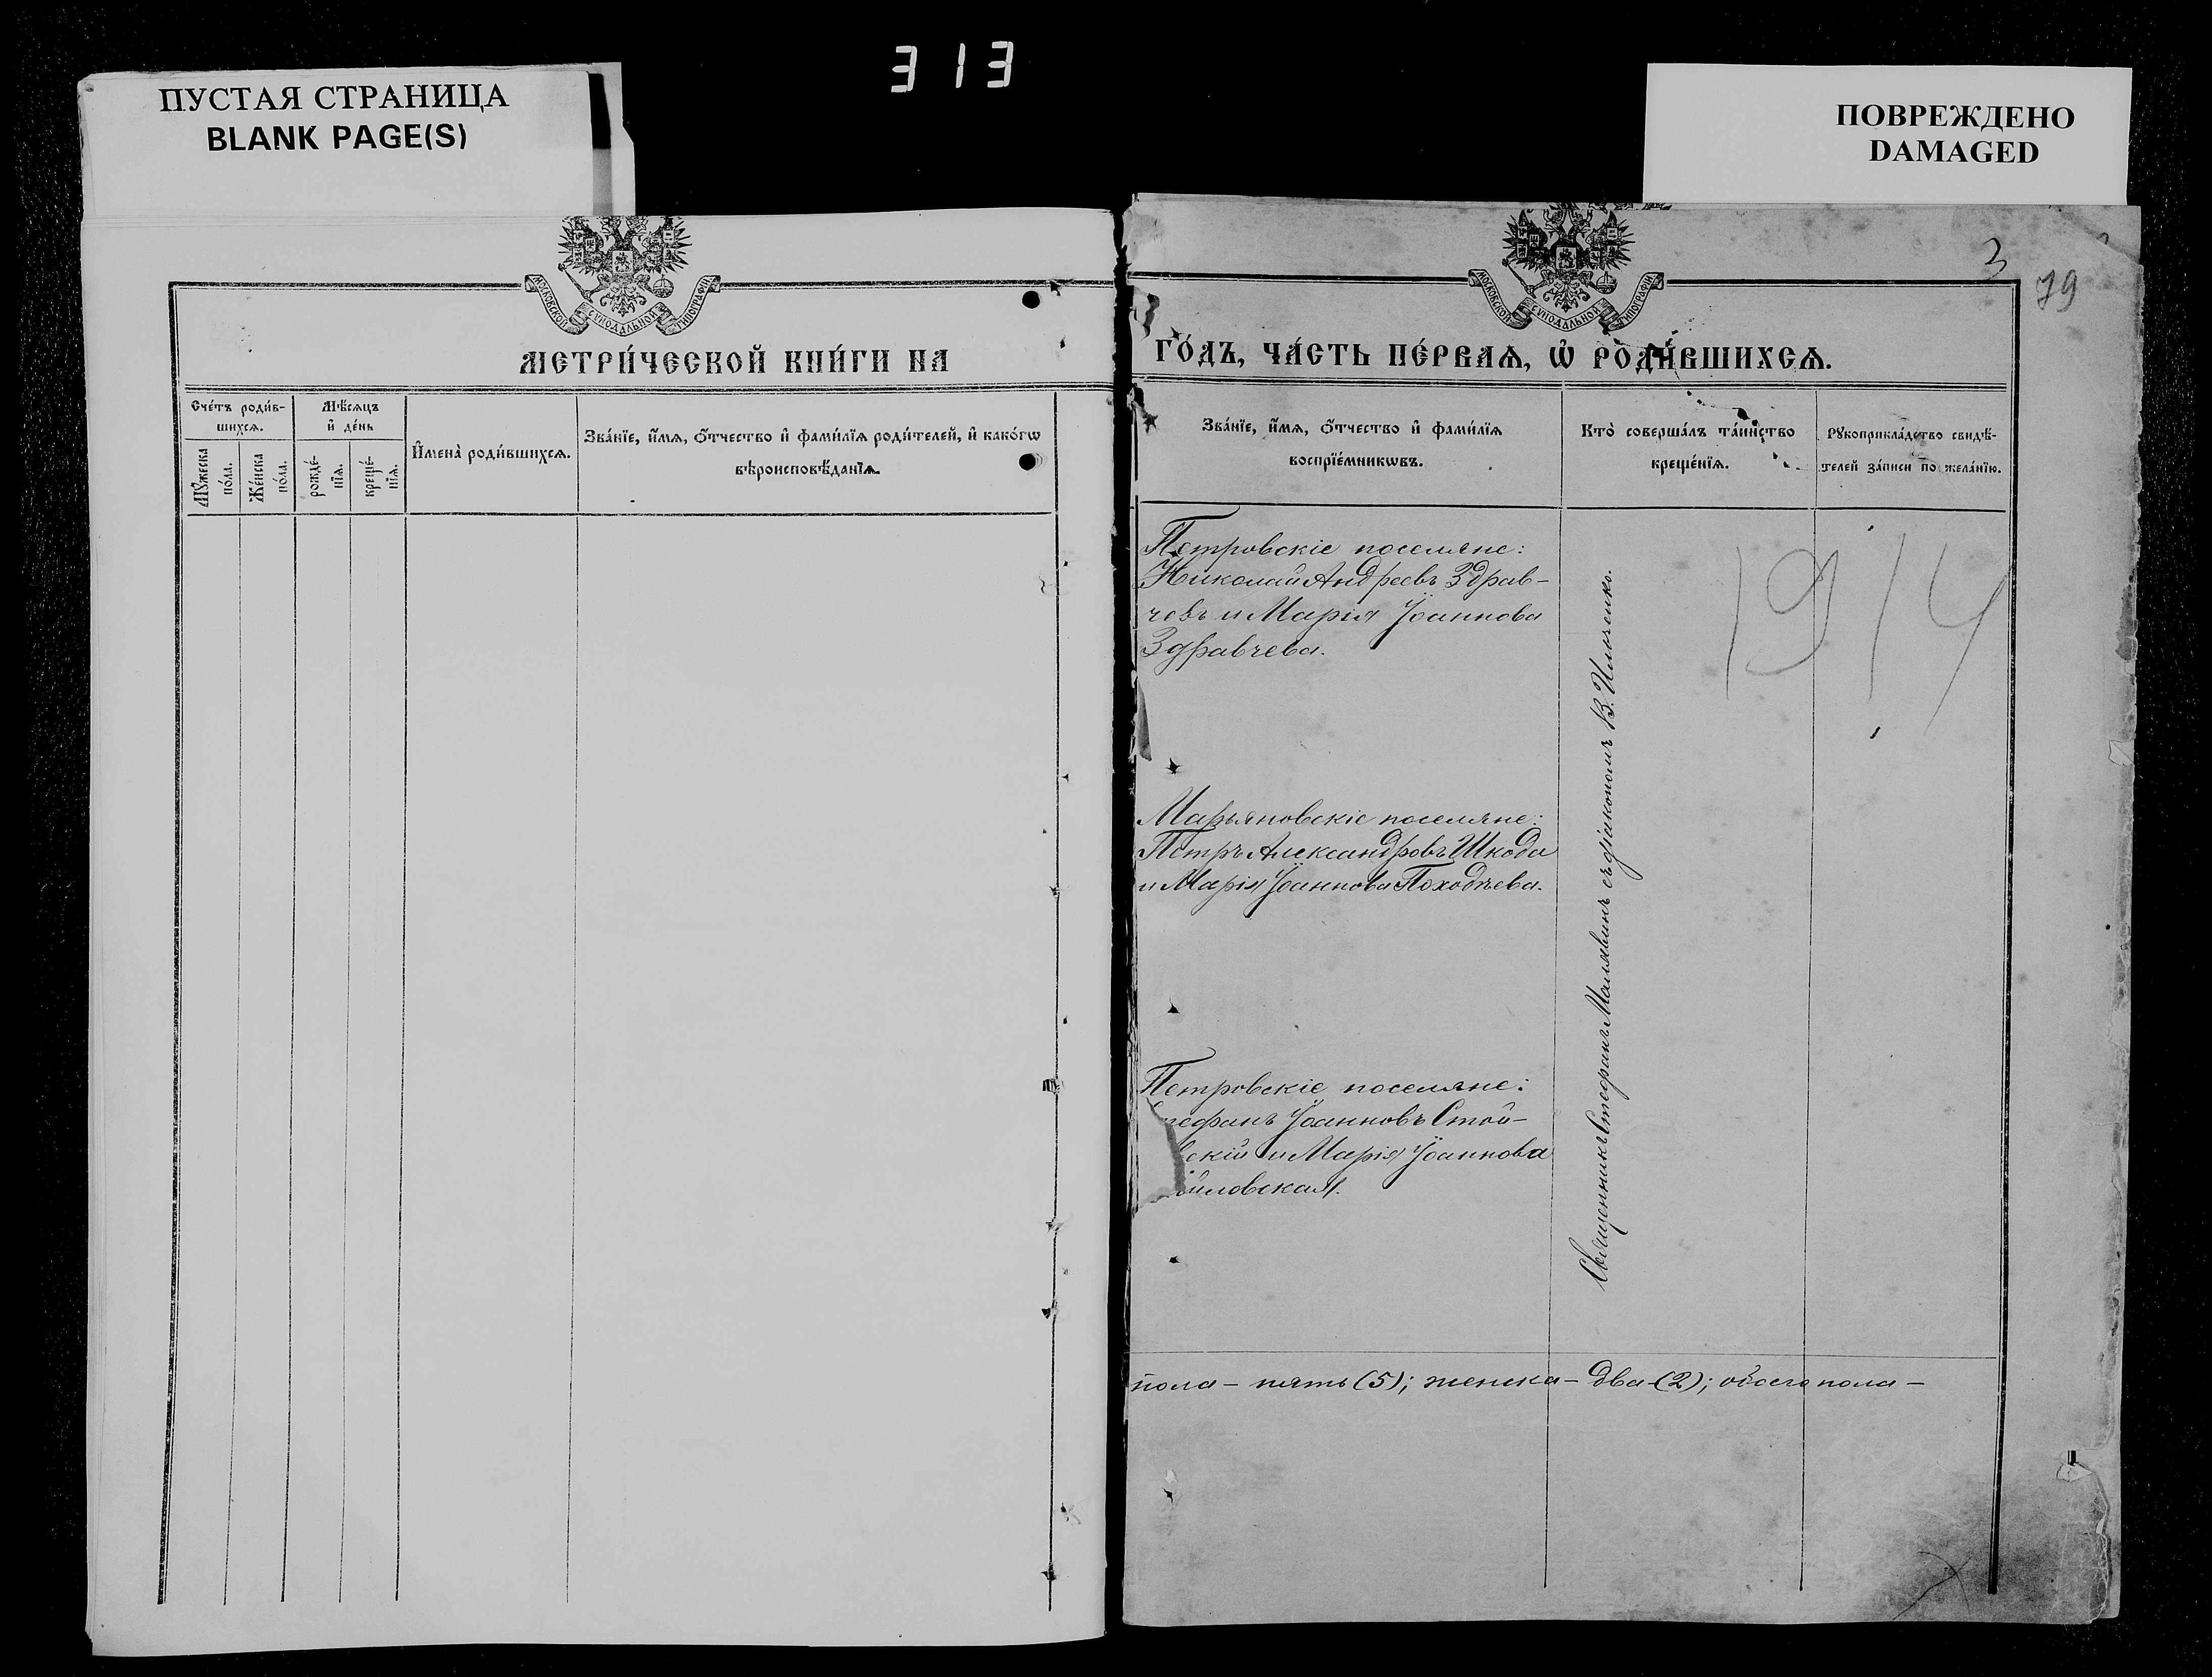 313
ПУСТАЯ СТРАНИЦА
BLANK PAGE(S)
ПОВРЕЖДЕНО
DAMAGED
МОСКОВСКОЙ СѴНОДАЛЬНОЙ ТИПОГРАФІИ
МЕТРИ́ЧЕСКОЙ КНИ́ГИ НА
Сче́тъ роди́в-
шихсѧ.
Мѣ́сѧцъ
и҆ де́нь
Мꙋ́жеска
по́ла.
Же́нска
по́ла.
рожде́-
нїѧ.
креще́-
нїѧ.
И҆мена̀ роди́вшихсѧ.
Зва́нїе, и҆́мѧ, ѻ҆́тчество и҆ фами́лїѧ роди́телей, и҆ како́гѡ
вѣроисповѣ́данїѧ.
МОСКОВСКОЙ СѴНОДАЛЬНОЙ ТИПОГРАФІИ
3
79
ГО́ДЪ, ЧА́СТЬ ПЕ́РВАѦ, Ѡ҆ РОДИ́ВШИХСѦ.
Зва́нїе, и҆́мѧ, ѻ҆́тчество и҆ фами́лїѧ
воспрїе́мникѡвъ.
Кто̀ соверша́лъ та́инство
креще́нїѧ.
Рꙋкоприкла́дство свидѣ́-
телей за́писи по жела́нїю.
Петровскіе поселяне:
Николай Андреевъ Здрав-
чевъ и Марія Іоаннова
Здравчева.
1914
Марьяновскіе поселяне:
Петръ Александровъ Шкода
и Марія Іоаннова Походчева.
Петровскіе поселяне:
тефанъ Іоанновъ Стой-
вскій и Марія Іоаннова
йловская.
Священникъ Стефанъ Малявинъ съ діакономъ В.
пола – пять (5); женска – два (2); обоего пола –